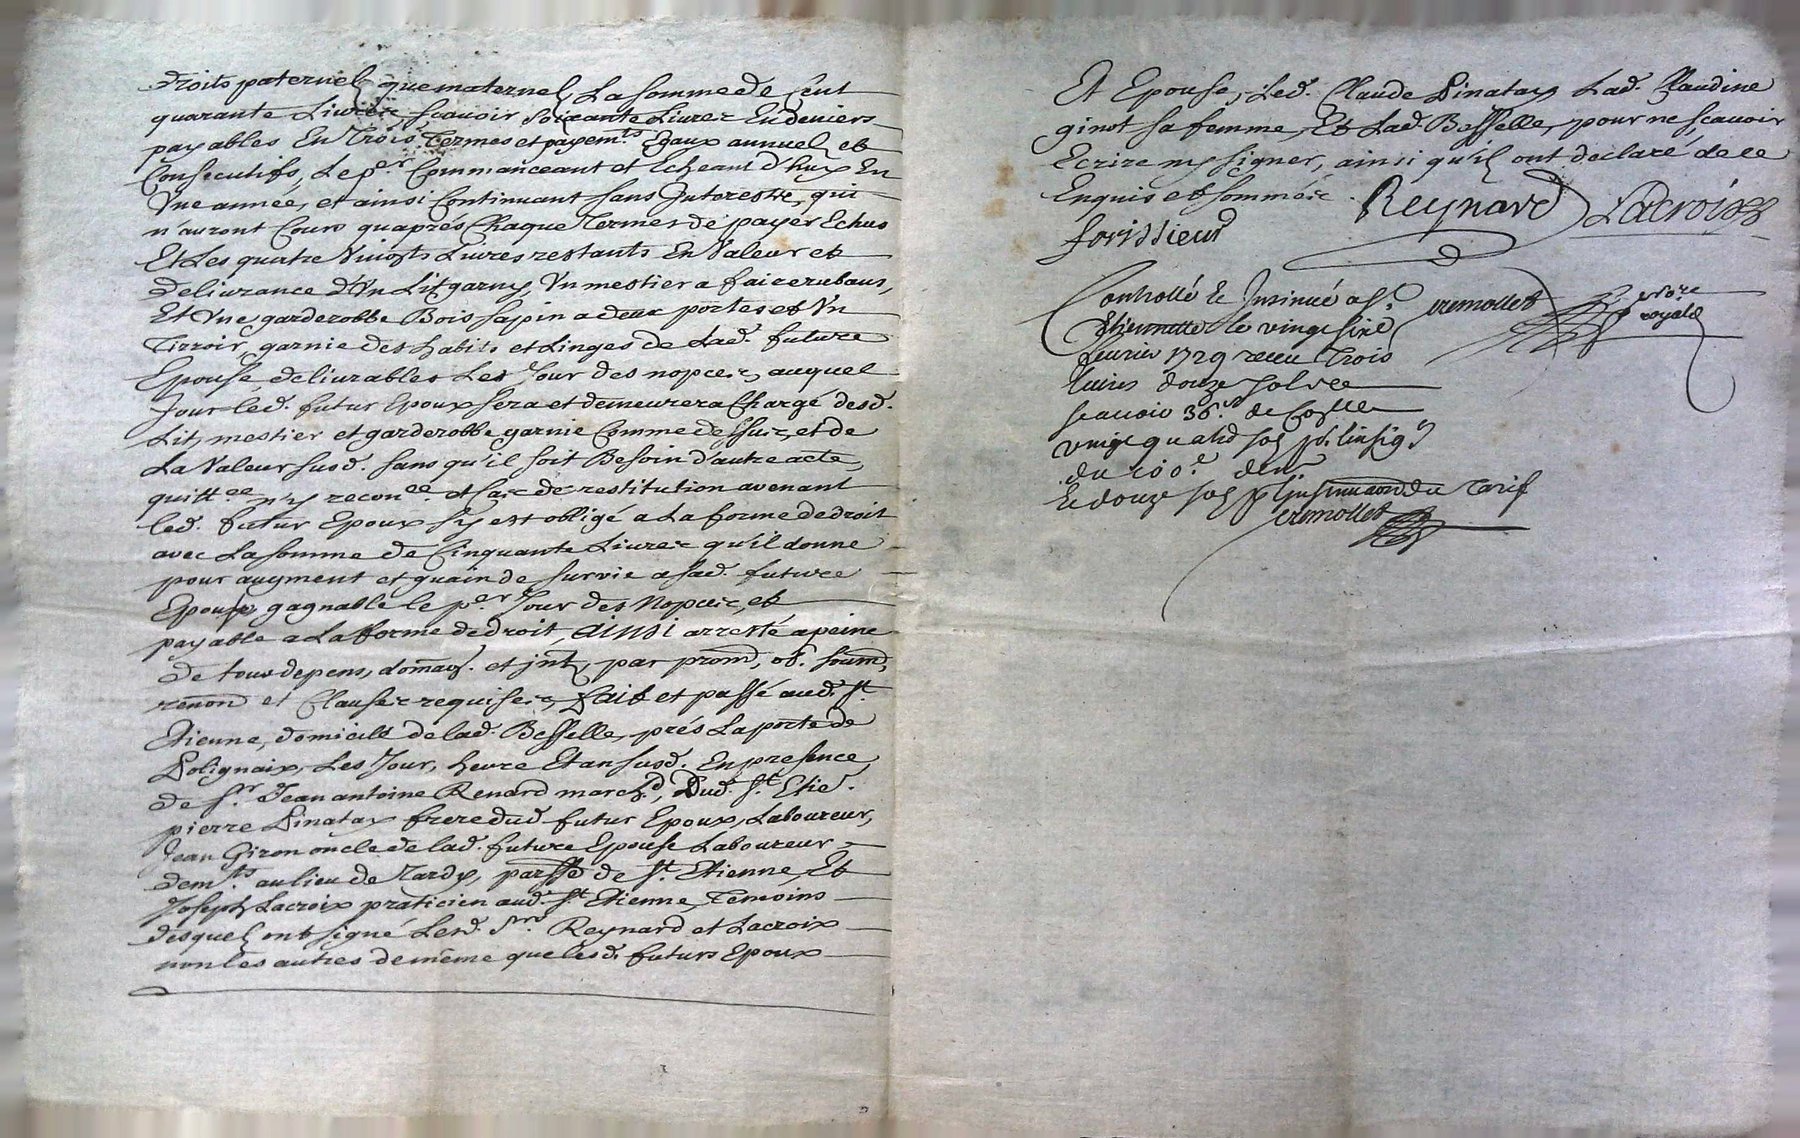 droits paternels que maternels, La somme de Cent
quarante Livres, scavoir soixante Livres En deniers
payables En Trois Termes et payemts. Egaux annuels et
Consecutifs, Le per. Commanceant et Echeant d'huy En
Une année, et ainsi Continuant sans Interestz, qui
n'auront Cours qu'aprés Chaque Termes de payer Echus
Et Les quatre Vingts Livres restants En Valeur et
delivrance d'Un Lit garny, Un mestier a faire rubans,
Et Une garderobbe Bois sapin a deux portes et Un
Tirroir, garnie des habits et Linges de Lad. future
Epouse, delivrables Les Jour des nopces, auquel
Jour led. futur Epoux sera et demeurera Chargé desd.
Lit, mestier et garderobbe garnie Comme dessus, et de
La Valeur susd. sans qu'il soit Besoin d'autre acte,
quittce. n'y reconce. et Cas de restitution avenant
led. futur Epoux s'y est obligé a La forme de droit
avec La somme de Cinquante Livres qu'il donne
pour augment et guain de survie a sad. future
Epouse gagnable le per. Jour des Nopces, et
payable a La forme de droit, ainsi arresté a peine
de tous depens, domag. et jntz, par promd, ob. soumd,
renond et Clauses requises, Fait et passé aud. St.
Etienne, domicille de lad. Besselle, prés La porte de
Polignaix, Les Jour, heure Et an susd. En presence
de Sr. Jean antoine Renard marchd, Dud. St. Etie.
pierre Linatay frere dud. futur Epoux, Laboureur,
Jean Giron oncle de lad. future Epouse Laboureur
demts. au lieu de Tardy, parsse de St. Etienne, Et
Joseph Lacroix praticien aud. St. Etienne, Temoins
desquels ont signé Lesd. Srs. Reynard et Lacroix
non les autres de méme que lesd. futurs Epoux
Et Epouse, Led. Claude Linatay Lad. Claudine
ginot sa femme, Et Lad. Besselle, pour ne scavoir
Ecrire ny signer, ainsi qu'ils ont declaré de ce
Enquis et sommés. Reynard Lacroix
forissieur
Controllé & Insinué a St. cremollet nore
Etiennette le vingt six royal
feuvrier 1729 receu Trois
livres douze sols
scavoir 36 s. de Colle
vingt quatre sols pr. linsig
du 100e. den
Et douze sols pr. linsinuaon du Tarif
cremollet